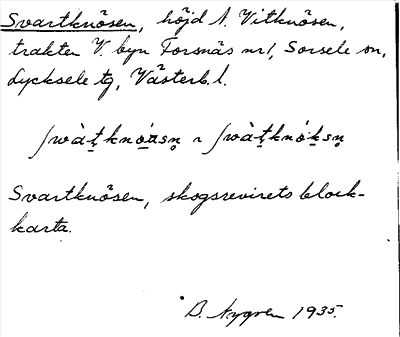 Svartknösen, höjd N. Vitknösen,
trakten V. byn Forsnäs nr 1, Sorsele sn,
Lycksele tg, Västerb. l.
Svartknösen, skogsrevirets block-
karta.
B. Nygren 1935.